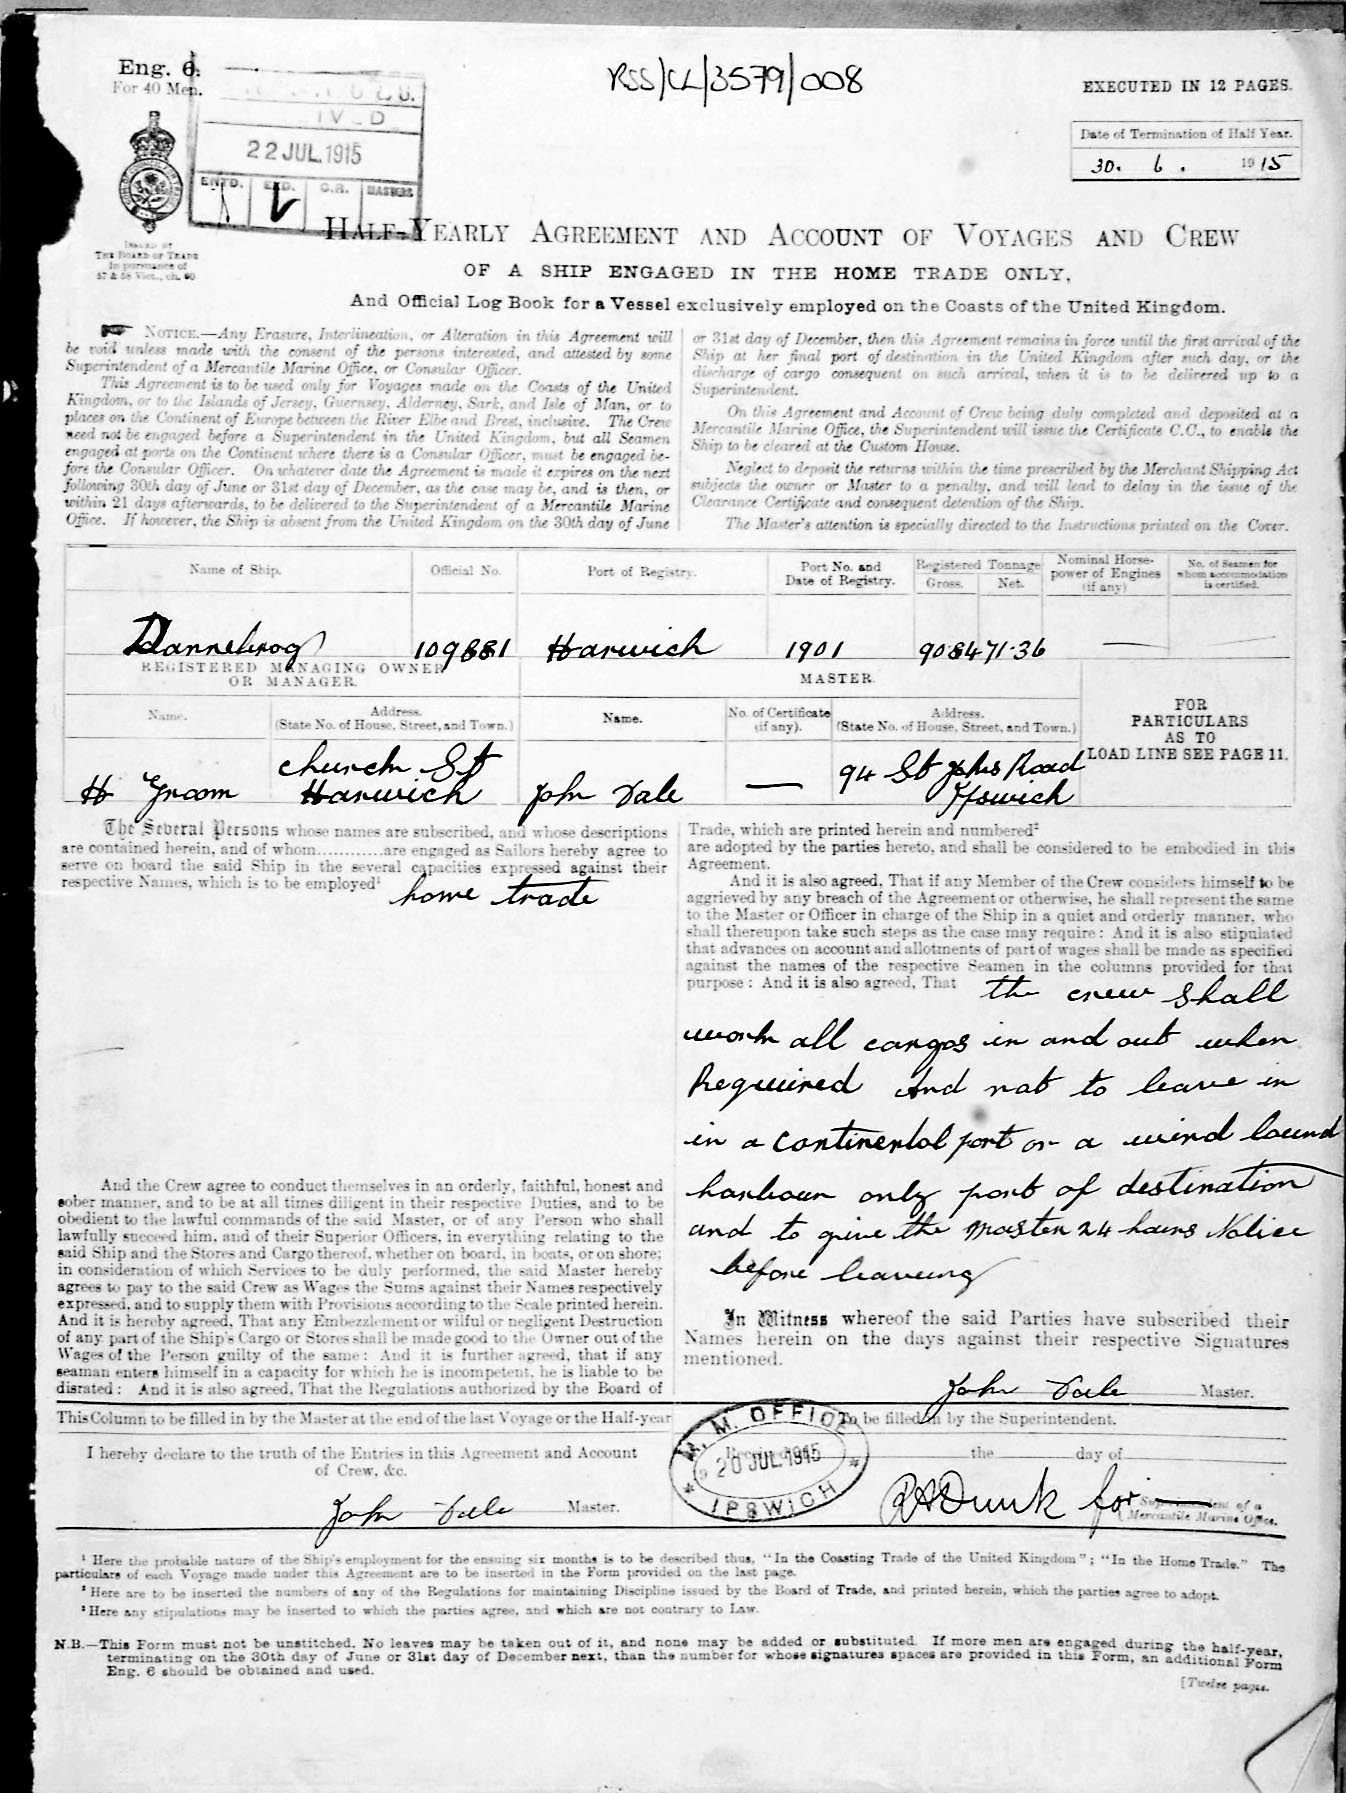 RSS/CL/3579/008
Eng. 6.
For 40 Men.
EXECUTED IN 12 PAGES.
Date of Termination of Half Year.
30. 6. 1915
22 JUL 1915
ENTD. EXD. C.R. MASTERS
ISSUED BY
THE BOARD OF TRADE
In pursuance of
57 & 58 Vict., ch. 60
HALF-YEARLY AGREEMENT AND ACCOUNT OF VOYAGES AND CREW
OF A SHIP ENGAGED IN THE HOME TRADE ONLY,
And Official Log Book for a Vessel exclusively employed on the Coasts of the United Kingdom.
NOTICE.—Any Erasure, Interlineation, or Alteration in this Agreement will
be void unless made with the consent of the persons interested, and attested by some
Superintendent of a Mercantile Marine Office, or Consular Officer.
This Agreement is to be used only for Voyages made on the Coasts of the United
Kingdom, or to the Islands of Jersey, Guernsey, Alderney, Sark, and Isle of Man, or to
places on the Continent of Europe between the River Elbe and Brest, inclusive. The Crew
need not be engaged before a Superintendent in the United Kingdom, but all Seamen
engaged at ports on the Continent where there is a Consular Officer, must be engaged be-
fore the Consular Officer. On whatever date the Agreement is made it expires on the next
following 30th day of June or 31st day of December, as the case may be, and is then, or
within 21 days afterwards, to be delivered to the Superintendent of a Mercantile Marine
Office. If however, the Ship is absent from the United Kingdom on the 30th day of June
or 31st day of December, then this Agreement remains in force until the first arrival of the
Ship at her final port of destination in the United Kingdom after such day, or the
discharge of cargo consequent on such arrival, when it is to be delivered up to a
Superintendent.
On this Agreement and Account of Crew being duly completed and deposited at a
Mercantile Marine Office, the Superintendent will issue the Certificate C.C., to enable the
Ship to be cleared at the Custom House.
Neglect to deposit the returns within the time prescribed by the Merchant Shipping Act
subjects the owner or Master to a penalty, and will lead to delay in the issue of the
Clearance Certificate and consequent detention of the Ship.
The Master's attention is specially directed to the Instructions printed on the Cover.
Name of Ship. Official No. Port of Registry. Port No. and Date of Registry. Registered Tonnage Gross. Net. Nominal Horse-power of Engines (if any) No. of Seamen for whom accommodation is certified.
Dannebrog 109881 Harwich 1901 90847136 —
REGISTERED MANAGING OWNER
OR MANAGER.
MASTER.
Name. Address. (State No. of House, Street, and Town.) Name. No. of Certificate (if any). Address. (State No. of House, Street, and Town.)
FOR
PARTICULARS
AS TO
LOAD LINE SEE PAGE 11.
H Groom Church St Harwich John Dale — 94 St Johns Road Ipswich
The Several Persons whose names are subscribed, and whose descriptions
are contained herein, and of whom............are engaged as Sailors hereby agree to
serve on board the said Ship in the several capacities expressed against their
respective Names, which is to be employed¹
home trade
And the Crew agree to conduct themselves in an orderly, faithful, honest and
sober manner, and to be at all times diligent in their respective Duties, and to be
obedient to the lawful commands of the said Master, or of any Person who shall
lawfully succeed him, and of their Superior Officers, in everything relating to the
said Ship and the Stores and Cargo thereof, whether on board, in boats, or on shore;
in consideration of which Services to be duly performed, the said Master hereby
agrees to pay to the said Crew as Wages the Sums against their Names respectively
expressed, and to supply them with Provisions according to the Scale printed herein.
And it is hereby agreed, That any Embezzlement or wilful or negligent Destruction
of any part of the Ship's Cargo or Stores shall be made good to the Owner out of the
Wages of the Person guilty of the same: And it is further agreed, that if any
seaman enters himself in a capacity for which he is incompetent, he is liable to be
disrated: And it is also agreed, That the Regulations authorized by the Board of
Trade, which are printed herein and numbered²
are adopted by the parties hereto, and shall be considered to be embodied in this
Agreement.
And it is also agreed, That if any Member of the Crew considers himself to be
aggrieved by any breach of the Agreement or otherwise, he shall represent the same
to the Master or Officer in charge of the Ship in a quiet and orderly manner, who
shall thereupon take such steps as the case may require: And it is also stipulated
that advances on account and allotments of part of wages shall be made as specified
against the names of the respective Seamen in the columns provided for that
purpose: And it is also agreed, That the crew shall
work all cargos in and out when
Required And not to leave in
in a continental port or a wind bound
harbour only port of destination
and to give the master 24 hours Notice
before leaveing
In Witness whereof the said Parties have subscribed their
Names herein on the days against their respective Signatures
mentioned.
John Dale Master.
This Column to be filled in by the Master at the end of the last Voyage or the Half-year
I hereby declare to the truth of the Entries in this Agreement and Account
of Crew, &c.
John Dale Master.
To be filled in by the Superintendent.
the day of
M. M. OFFICE
20 JUL 1915
IPSWICH
for Superintendent of a
Mercantile Marine Office.
¹ Here the probable nature of the Ship's employment for the ensuing six months is to be described thus, "In the Coasting Trade of the United Kingdom"; "In the Home Trade." The
particulars of each Voyage made under this Agreement are to be inserted in the Form provided on the last page.
² Here are to be inserted the numbers of any of the Regulations for maintaining Discipline issued by the Board of Trade, and printed herein, which the parties agree to adopt.
³ Here any stipulations may be inserted to which the parties agree, and which are not contrary to Law.
N.B.—This Form must not be unstitched. No leaves may be taken out of it, and none may be added or substituted. If more men are engaged during the half-year,
terminating on the 30th day of June or 31st day of December next, than the number for whose signatures spaces are provided in this Form, an additional Form
Eng. 6 should be obtained and used.
[Twelve pages.